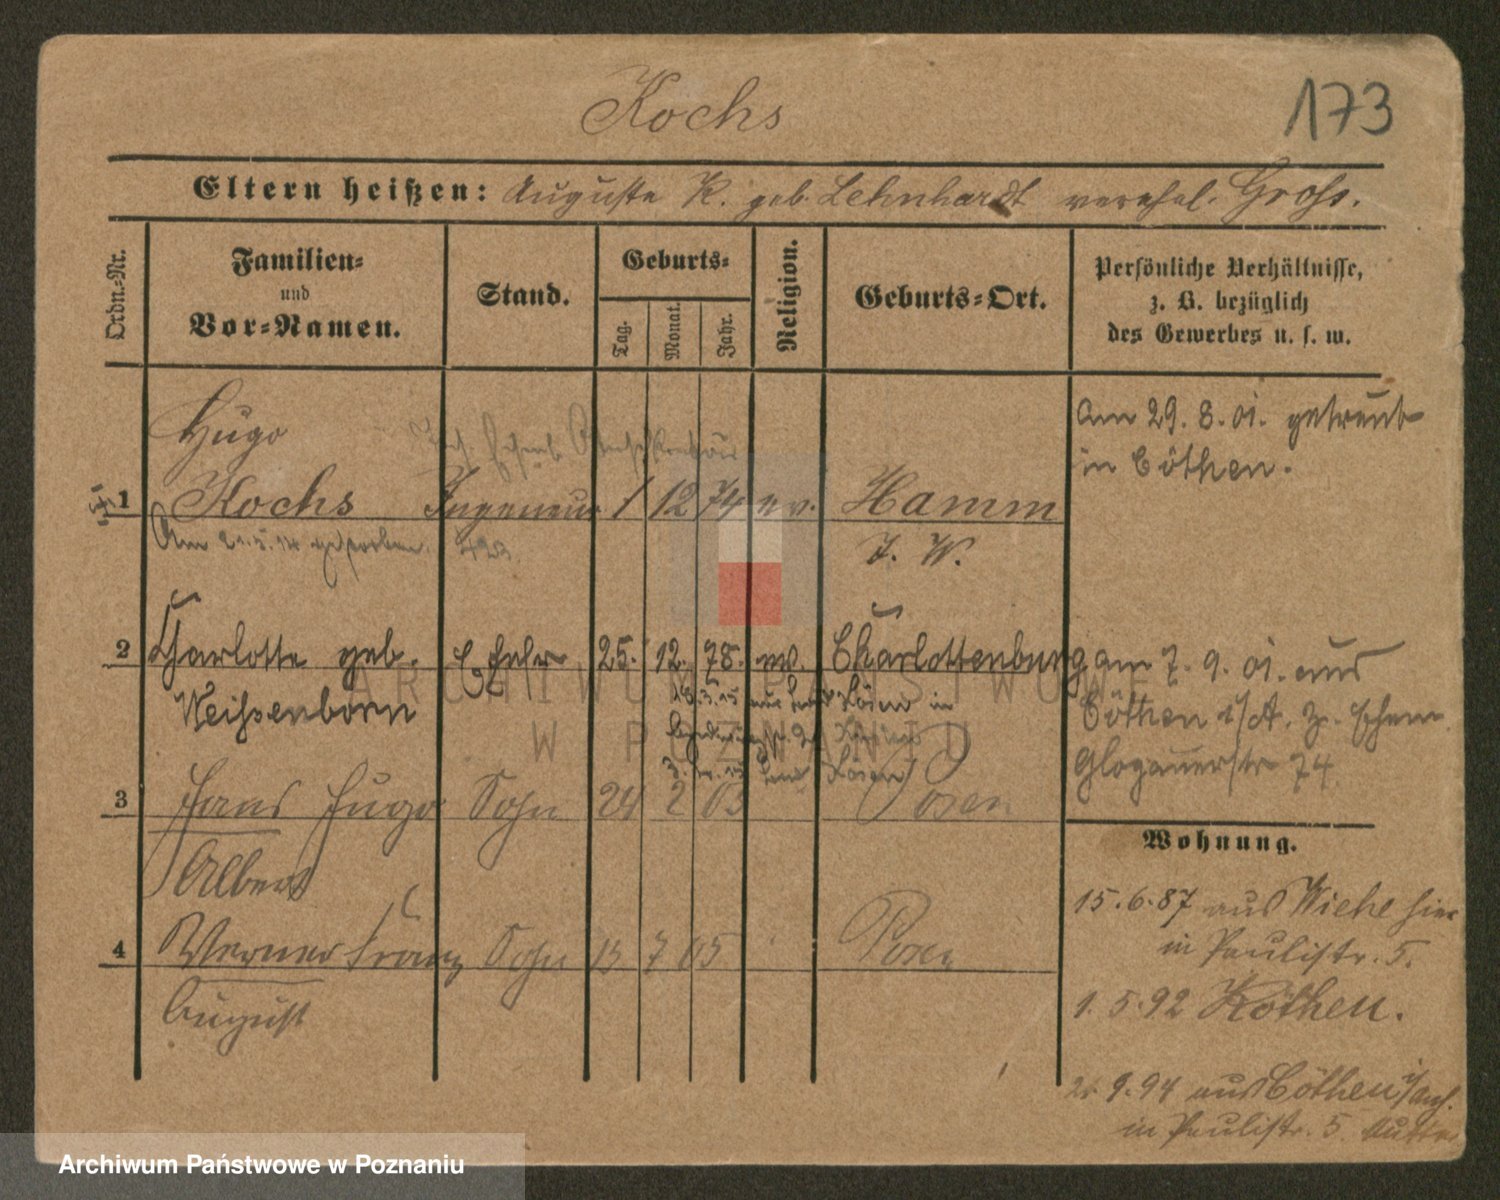 Kochs
173
Eltern heißen: Auguste K. geb. Lehnhardt verehel. Groß.
Ordn.-Nr.
Familien- und Vor-Namen.
Stand.
Geburts-
Tag.
Monat.
Jahr.
Religion.
Geburts-Ort.
Persönliche Verhältnisse, z. B. bezüglich des Gewerbes u. s. w.
Hugo
1 Kochs Ingenieur 1 12 74 ev. Hamm
Am 21.5.14 gestorben.
J. W.
Am 29.8.01. getraut
in Cöthen.
2 Charlotte geb. Ehefr 25. 12. 78. ev. Charlottenburg
Weißenborn
am 7.9.01. aus
Cöthen i/A. z. Ehem
Glogauerstr 74
3 Hans Hugo Sohn 24 2 03 Posen
Albert
4 Werner Franz Sohn 15 7 05 Posen
August
Wohnung.
15.6.87 aus Wiehe hier
in Paulistr. 5.
1.5.92 Köthen.
9.94 aus Cöthen i/Anh.
in Paulistr. 5. Mutter
ARCHIWUM PAŃSTWOWE
W POZNANIU
Archiwum Państwowe w Poznaniu